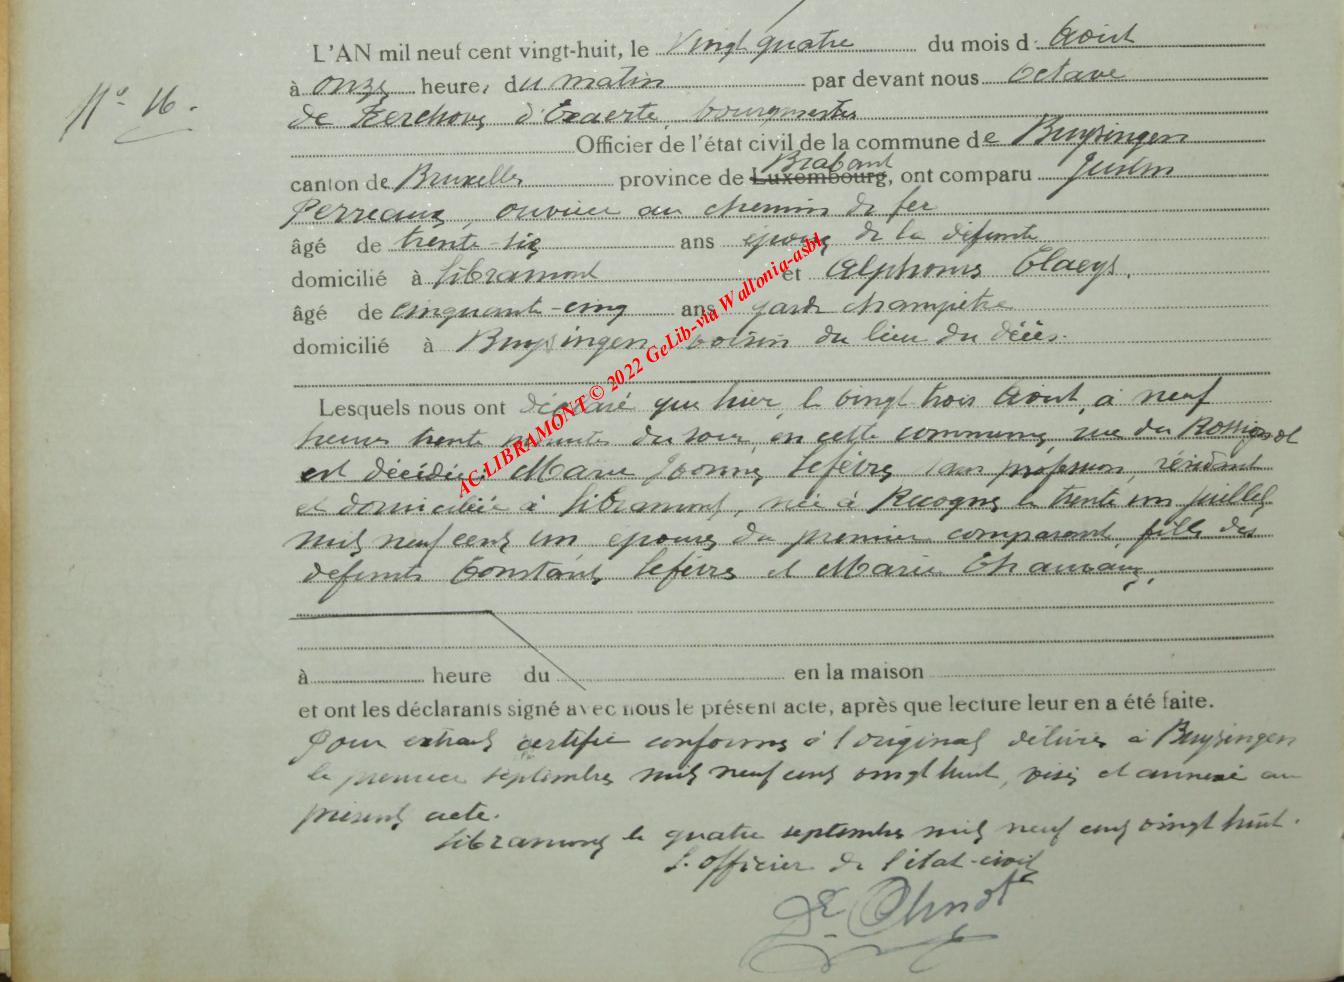 N° 16.
L'AN mil neuf cent vingt-huit, le vingt quatre du mois d'Août
à onze heures du matin par devant nous Octave
de Kerchove d'Exaerde, bourgmestre
Officier de l'état civil de la commune de Buysingen
canton de Bruxelles province de Luxembourg Brabant, ont comparu Justin
Perreaux, ouvrier au chemin de fer
âgé de trente-six ans époux de la défunte
domicilié à Libramont et Alphonse Claeys,
âgé de cinquante-cinq ans garde champêtre
domicilié à Buysingen voisin du lieu du décès.
Lesquels nous ont déclaré que hier, le vingt trois Août, à neuf
heures trente minutes du soir, en cette commune, rue du Rossignol
est décédée Marie Yvonne Lefèvre sans profession, résidant
et domiciliée à Libramont, née à Recogne le trente un juillet
mil neuf cent un épouse du premier comparant, fille des
défunts Constant Lefèvre et Marie Chauvaux,
à heure du en la maison
et ont les déclarants signé avec nous le présent acte, après que lecture leur en a été faite.
Pour extrait certifié conforme à l'original délivré à Buysingen
le premier septembre mil neuf cent vingt huit, visé et annexé au
présent acte.
Libramont le quatre septembre mil neuf cent vingt huit.
L'officier de l'état-civil
AC LIBRAMONT © 2022 GeLib-via Wallonia-asbl